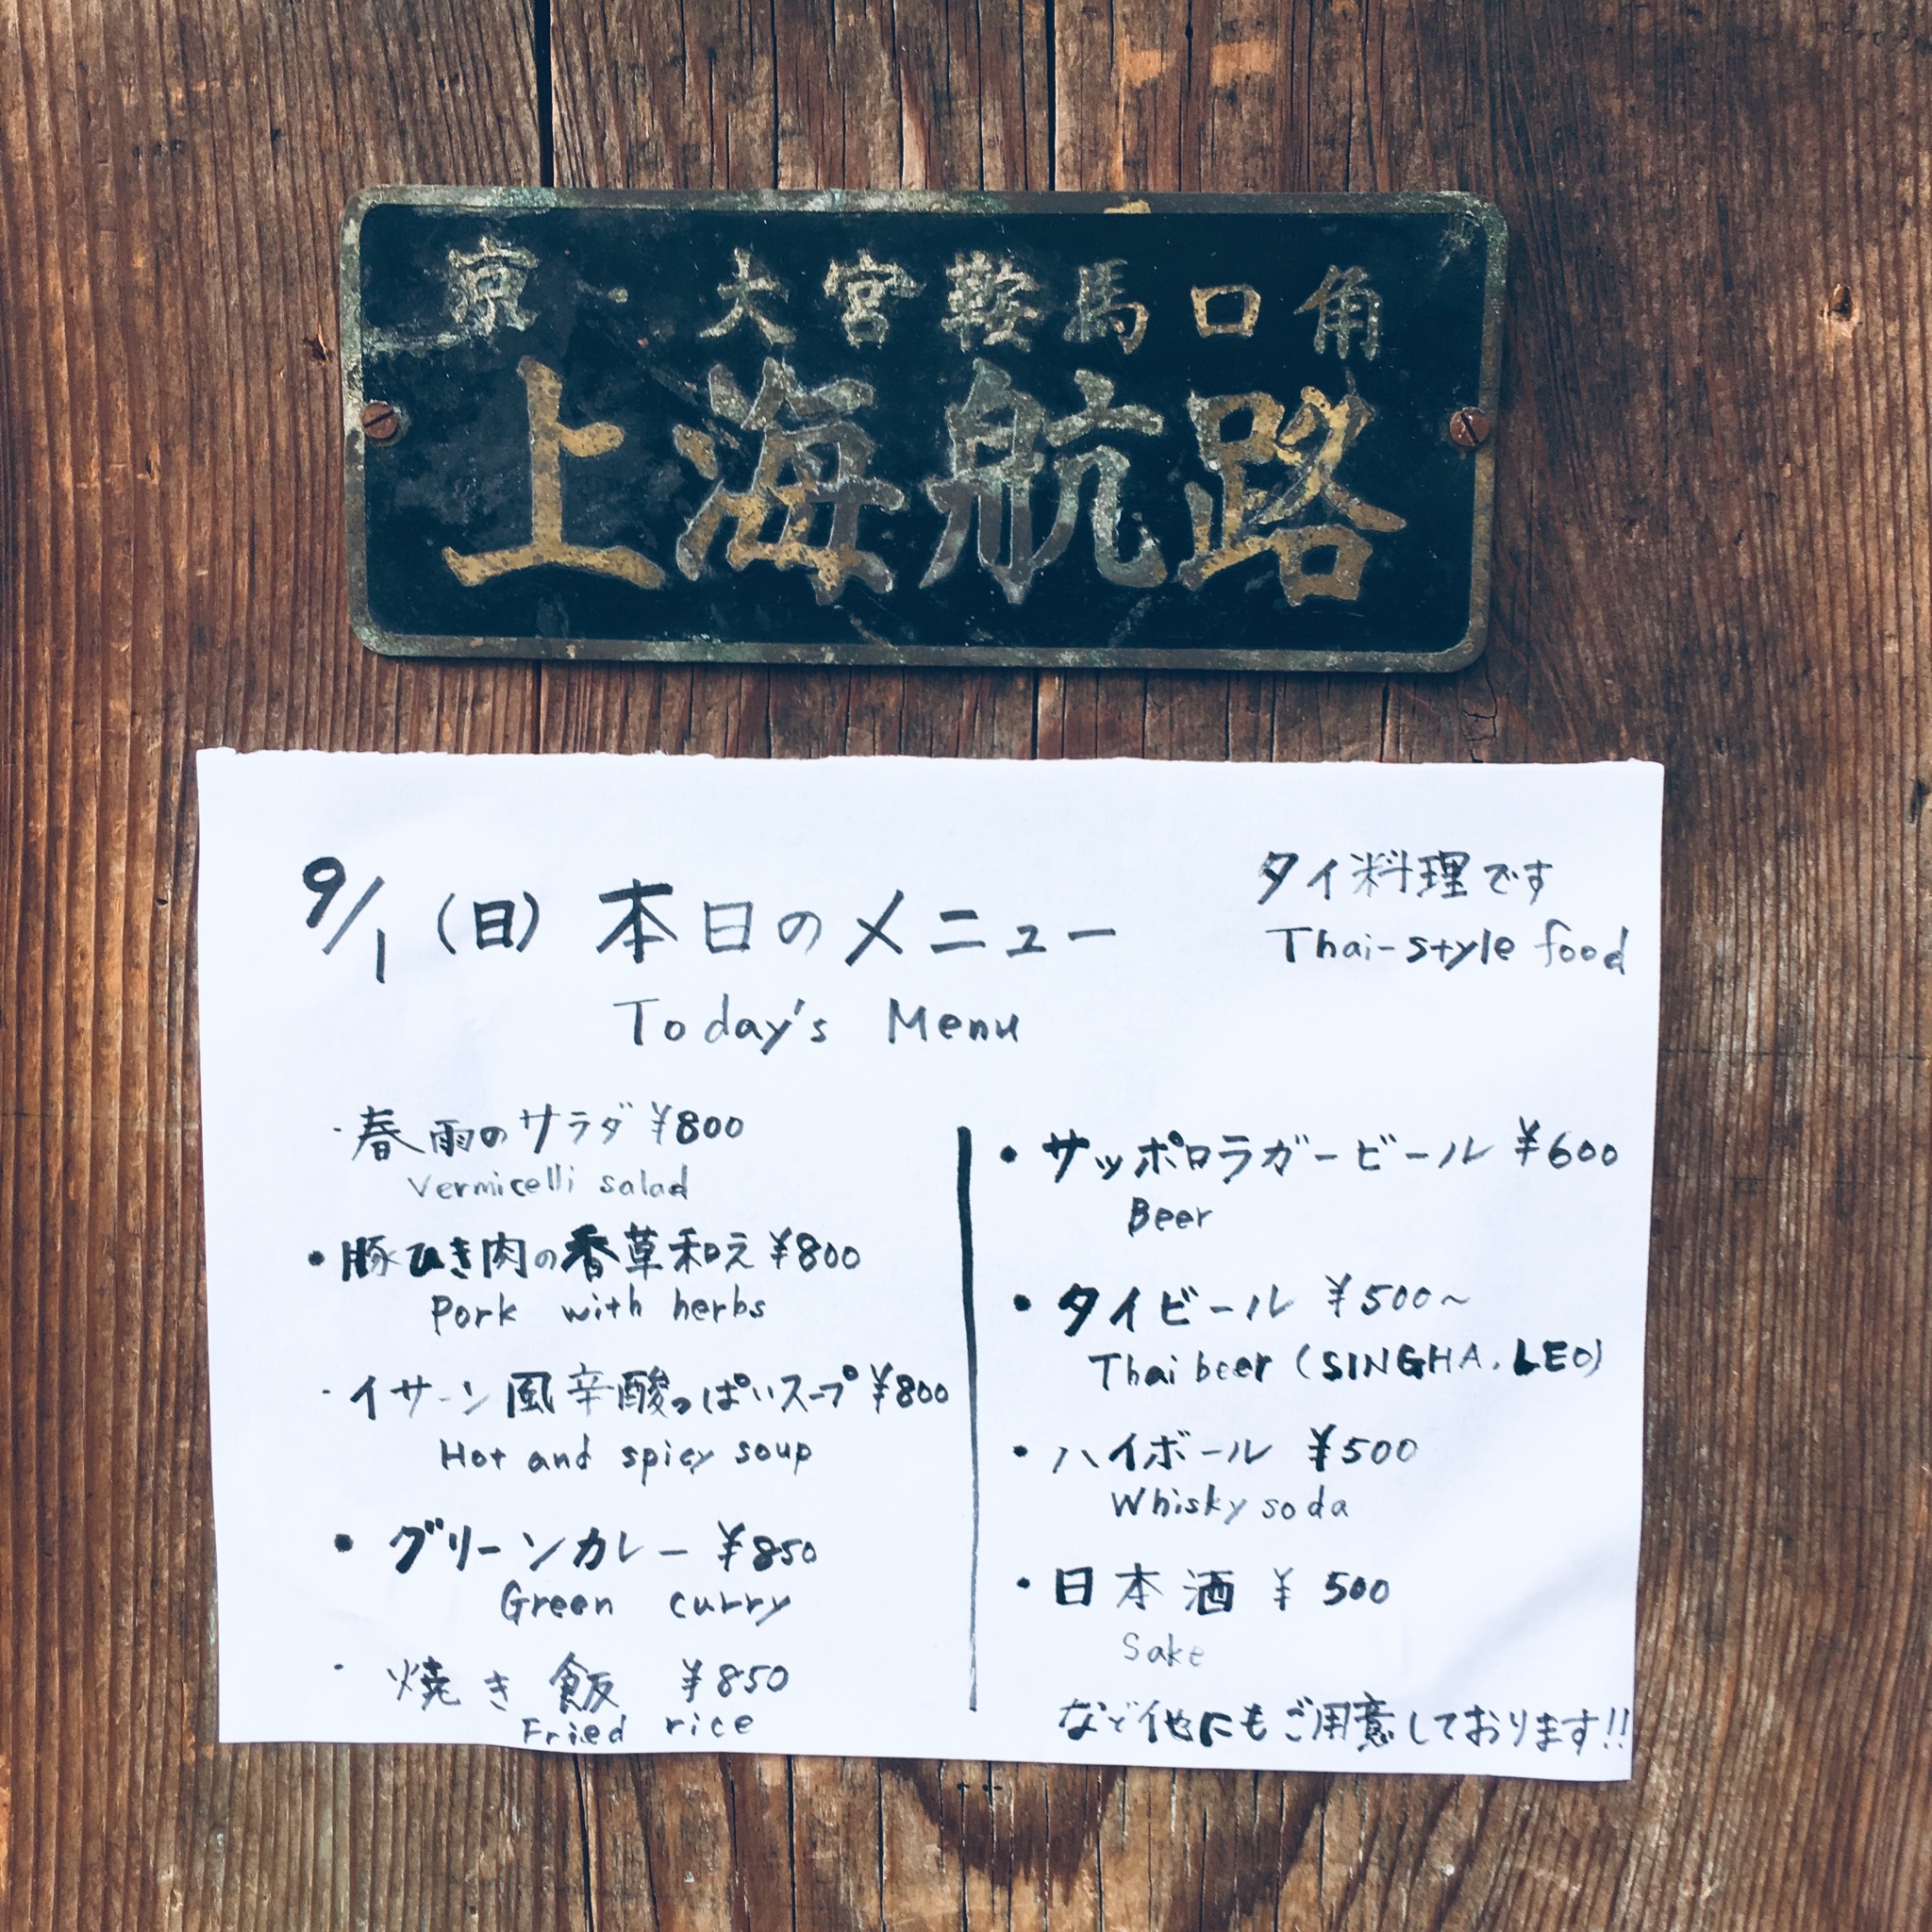 京・大宮鞍馬口角
上海航路
9/1(日) 本日のメニュー
Today's Menu
タイ料理です
Thai-style food
・春雨のサラダ ¥800
Vermicelli salad
・豚ひき肉の香草和え ¥800
Pork with herbs
・イサーン風辛酸っぱいスープ ¥800
Hot and spicy soup
・グリーンカレー ¥850
Green curry
・焼き飯 ¥850
Fried rice
・サッポロラガービール ¥600
Beer
・タイビール ¥500~
Thai beer (SINGHA. LEO)
・ハイボール ¥500
Whisky soda
・日本酒 ¥500
Sake
など他にもご用意しております!!